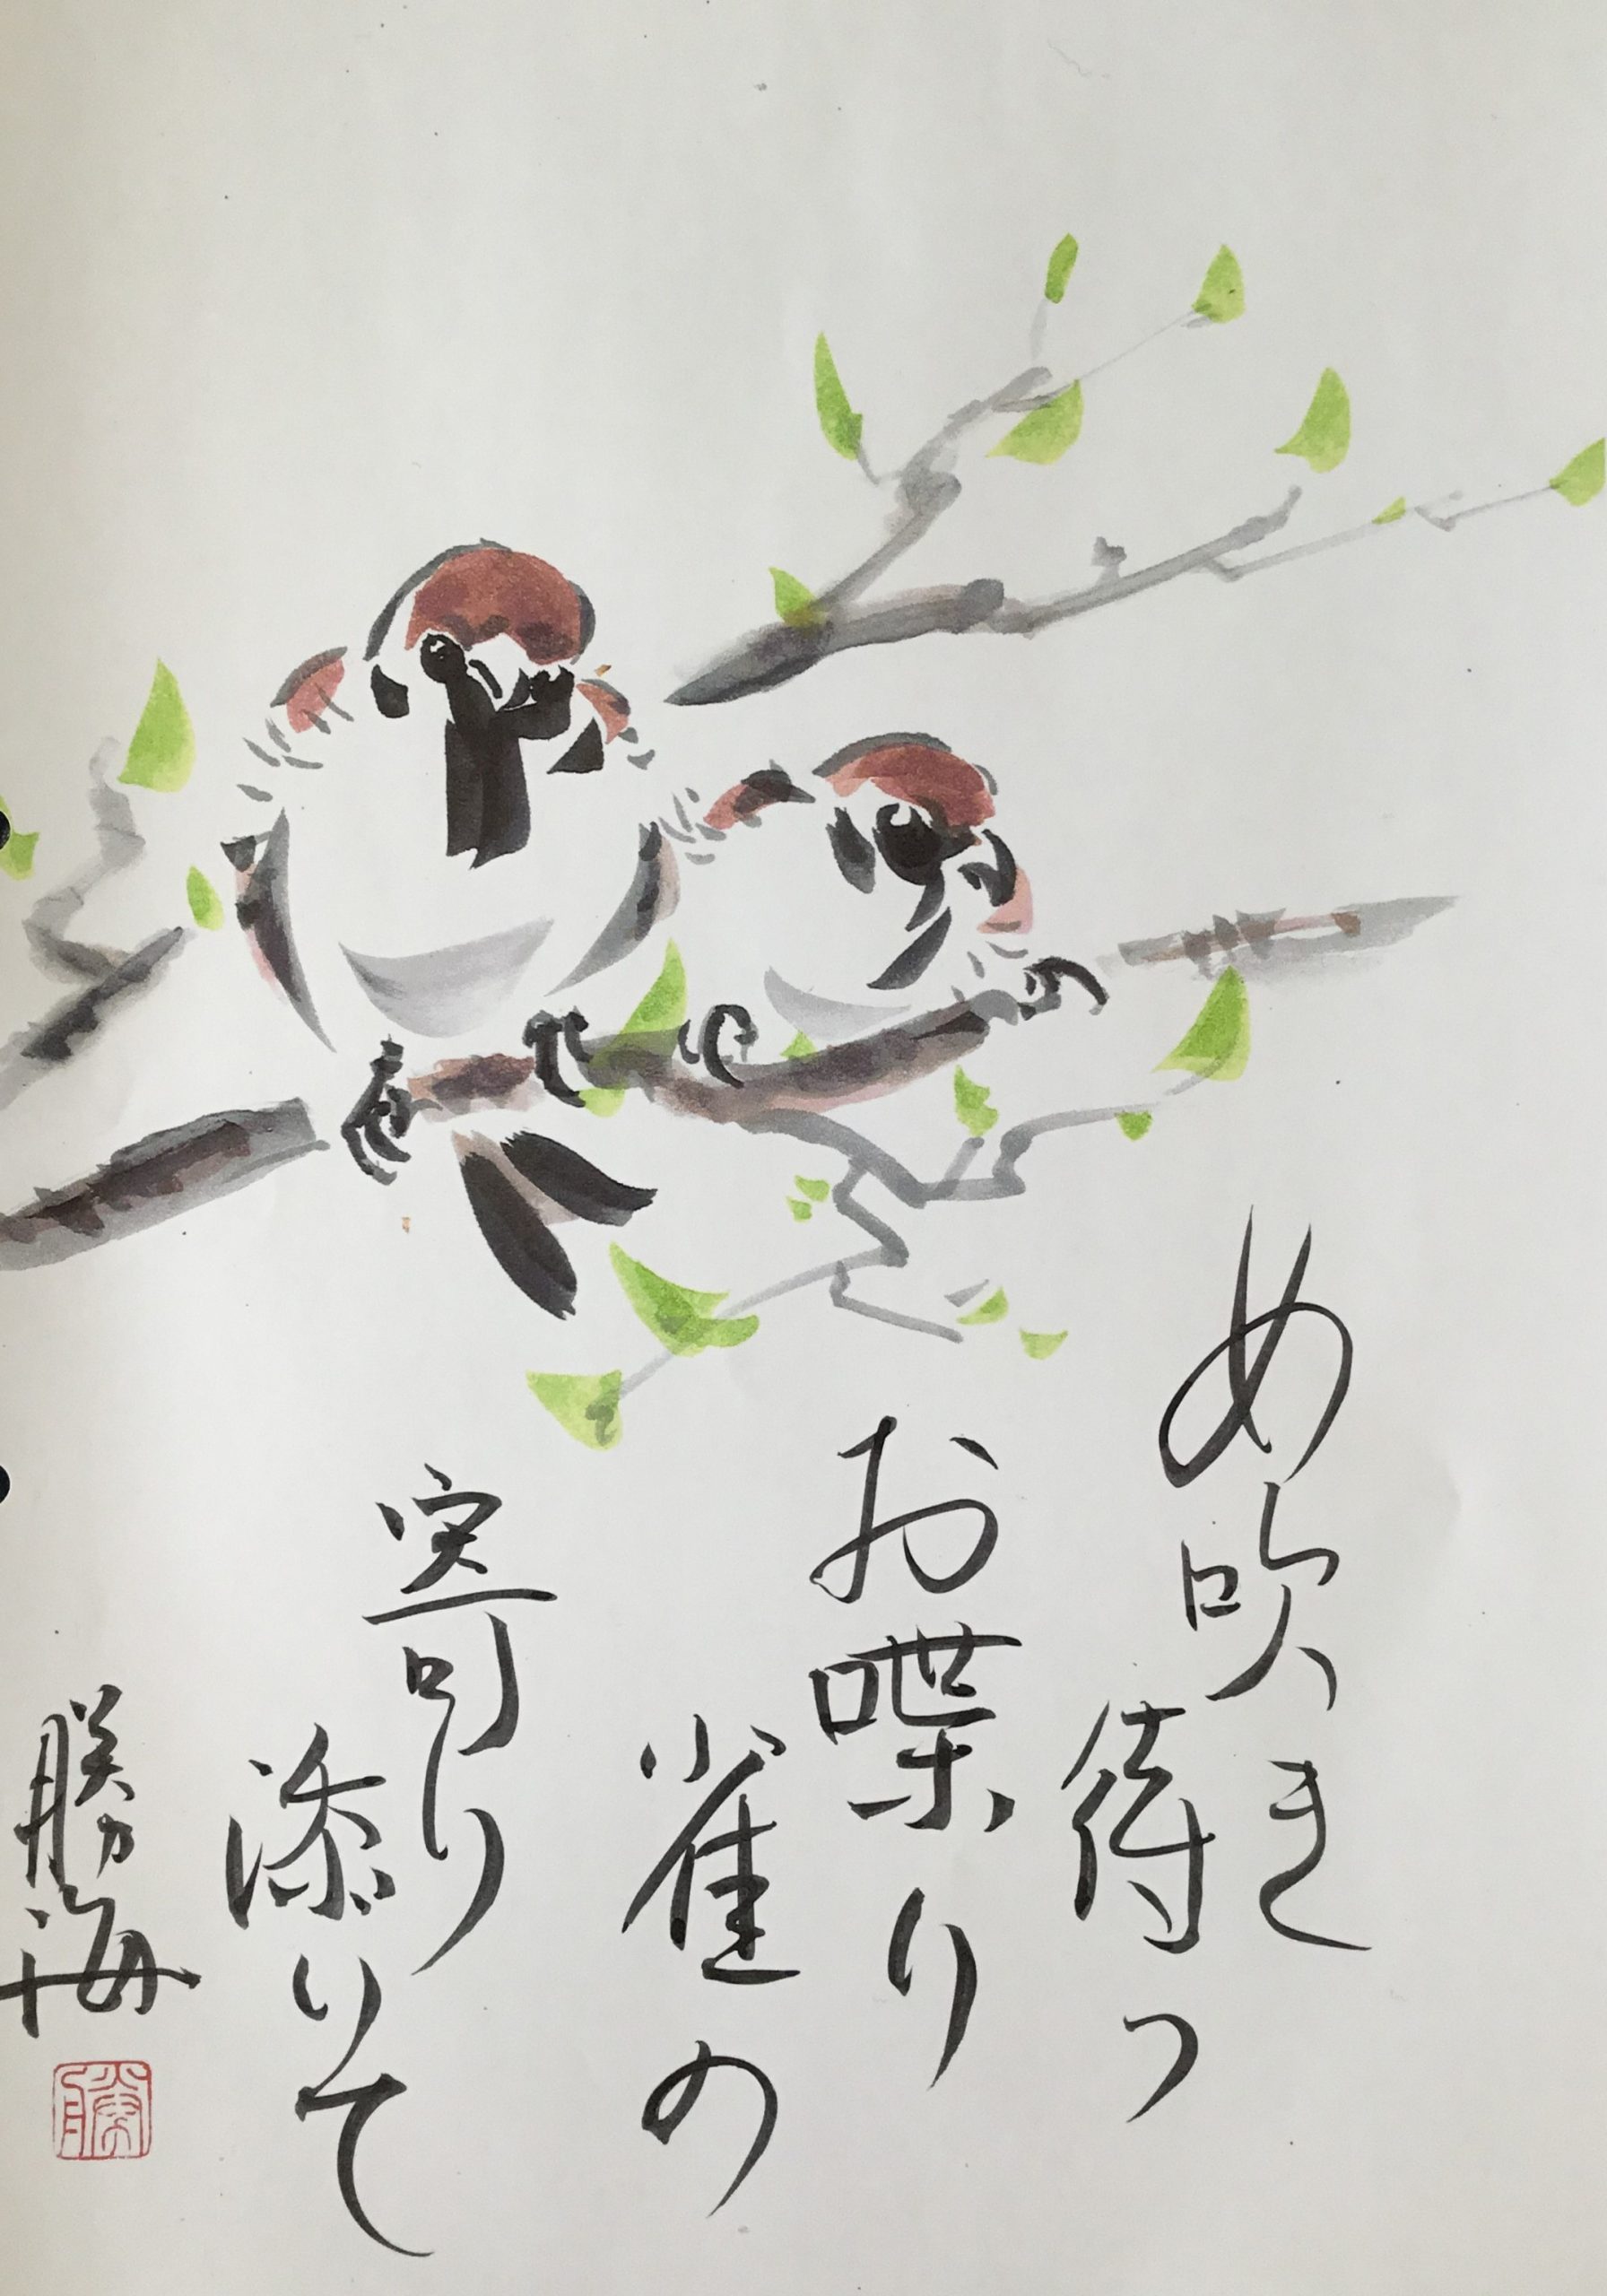 め吹き
待つ
お喋り
雀の
寄り
添いて
勝海
勝